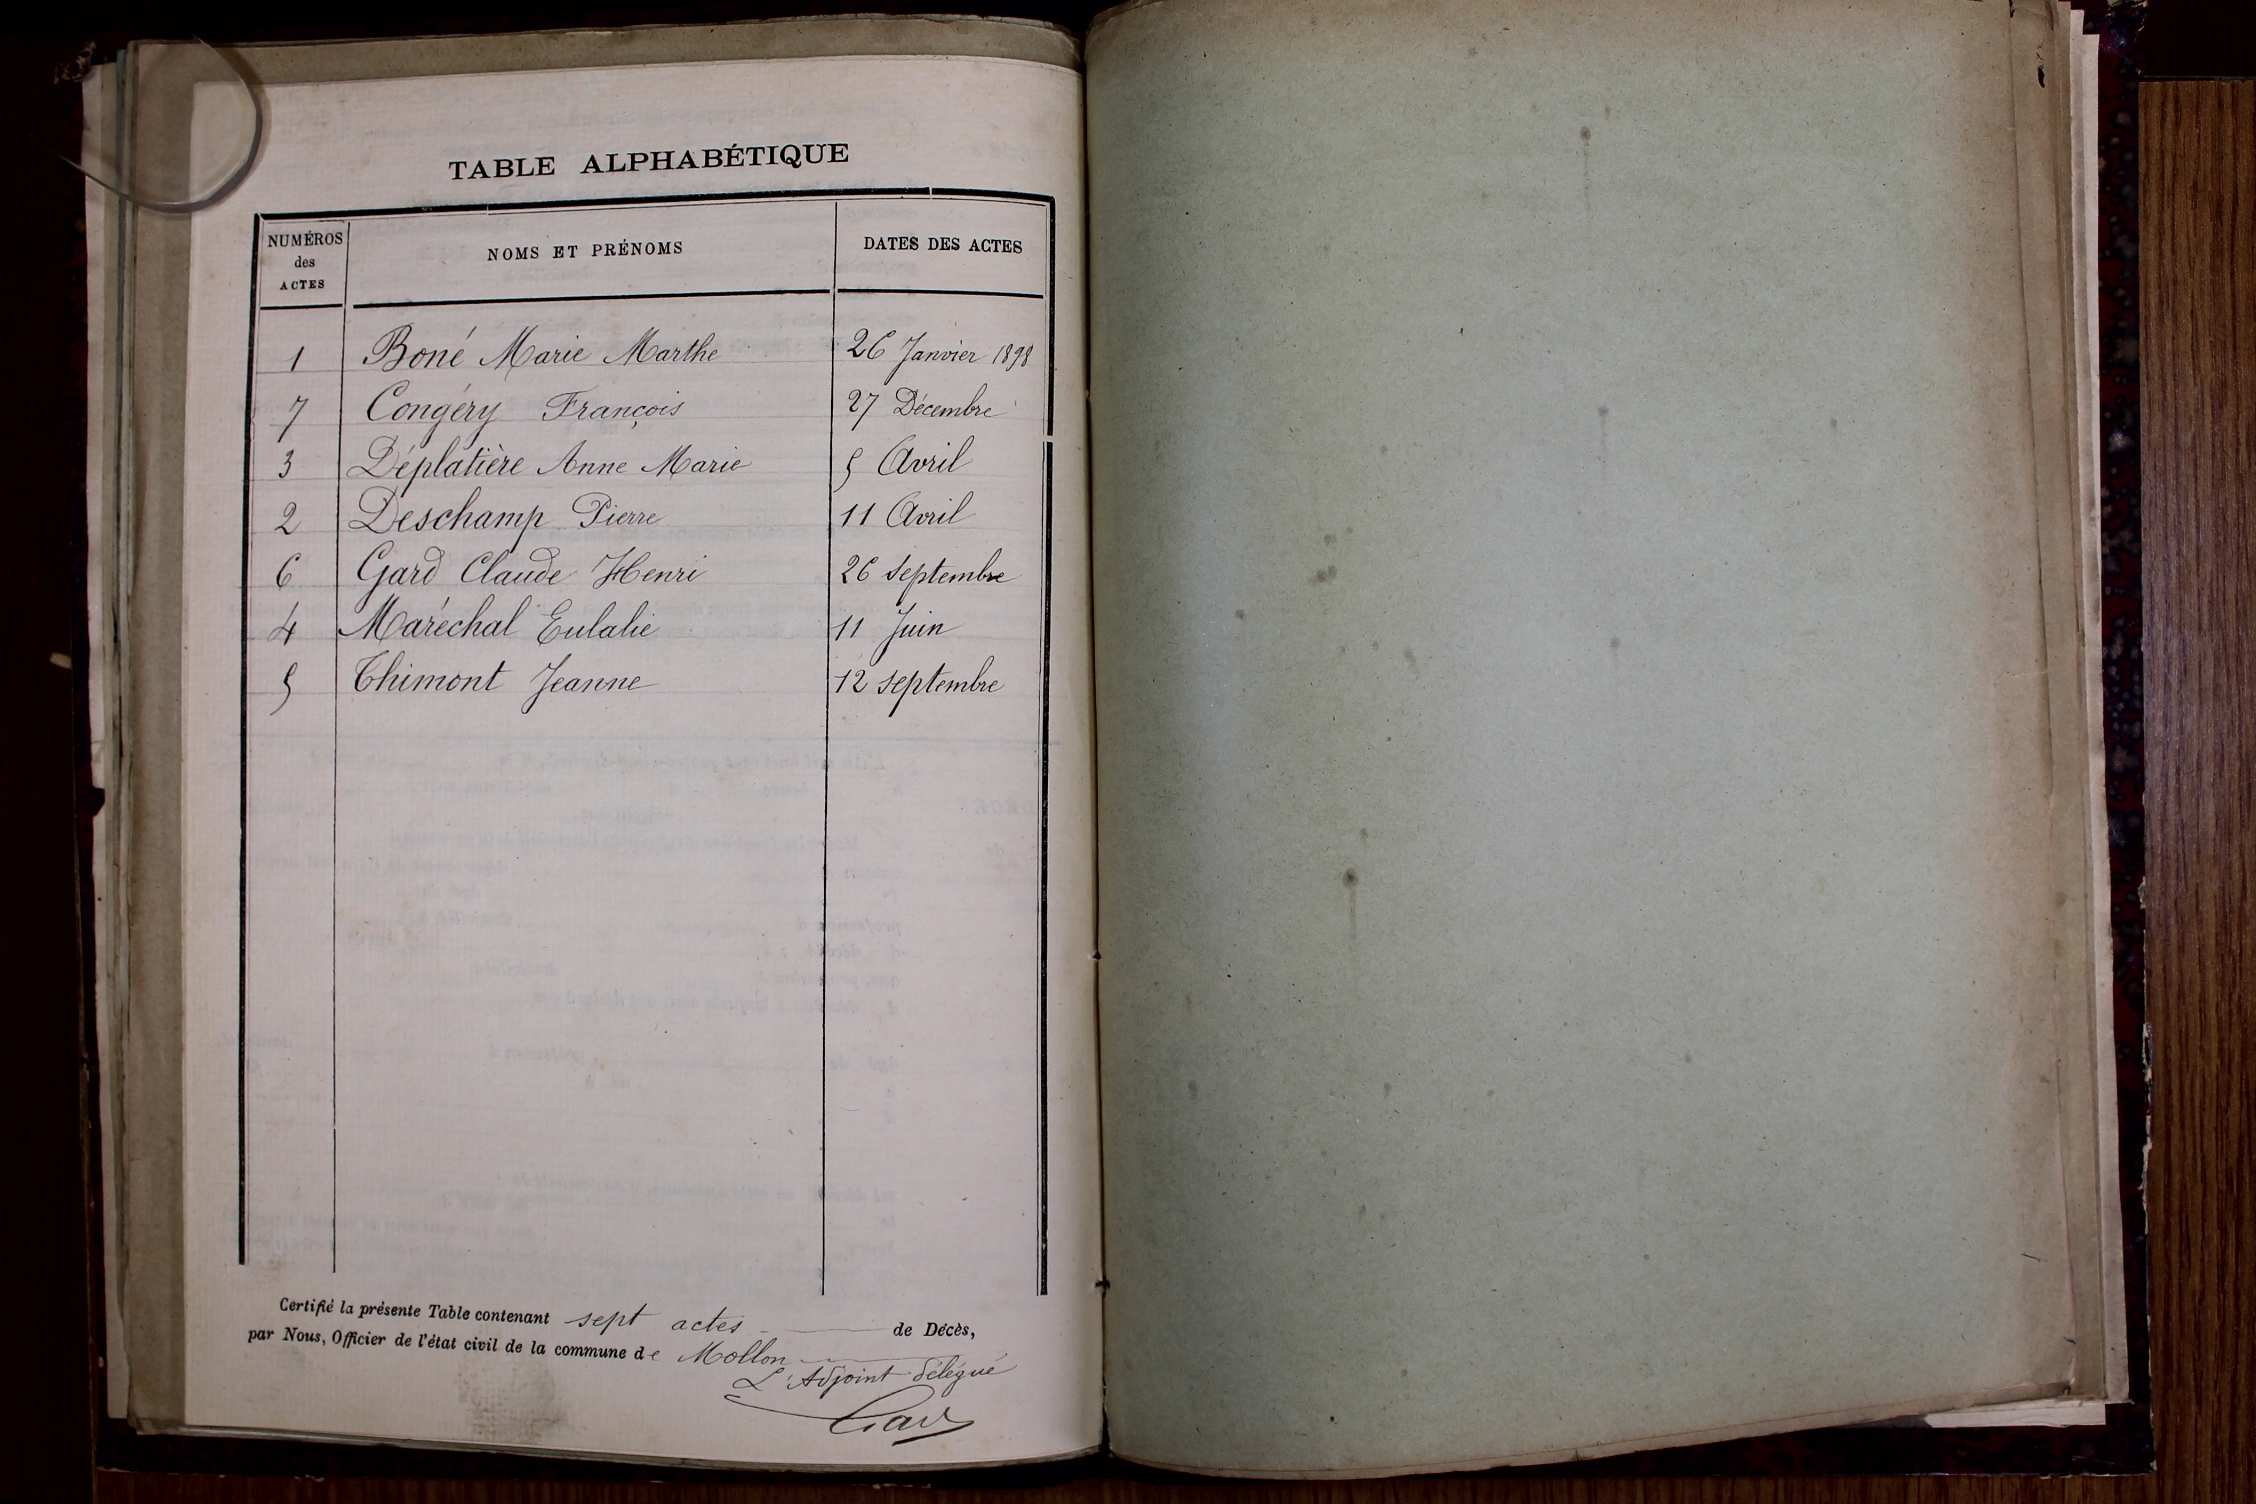 TABLE ALPHABÉTIQUE
NUMÉROS des ACTES NOMS ET PRÉNOMS DATES DES ACTES
1 Boné Marie Marthe 26 Janvier 1898
7 Congéry François 27 Décembre
3 Déplatière Anne Marie 5 Avril
2 Deschamp Pierre 11 Avril
6 Gard Claude Henri 26 septembre
4 Maréchal Eulalie 11 Juin
5 Thimont Jeanne 12 septembre
Certifié la présente Table contenant sept actes de Décès,
par Nous, Officier de l'état civil de la commune de Mollon
L'Adjoint délégué
Gard